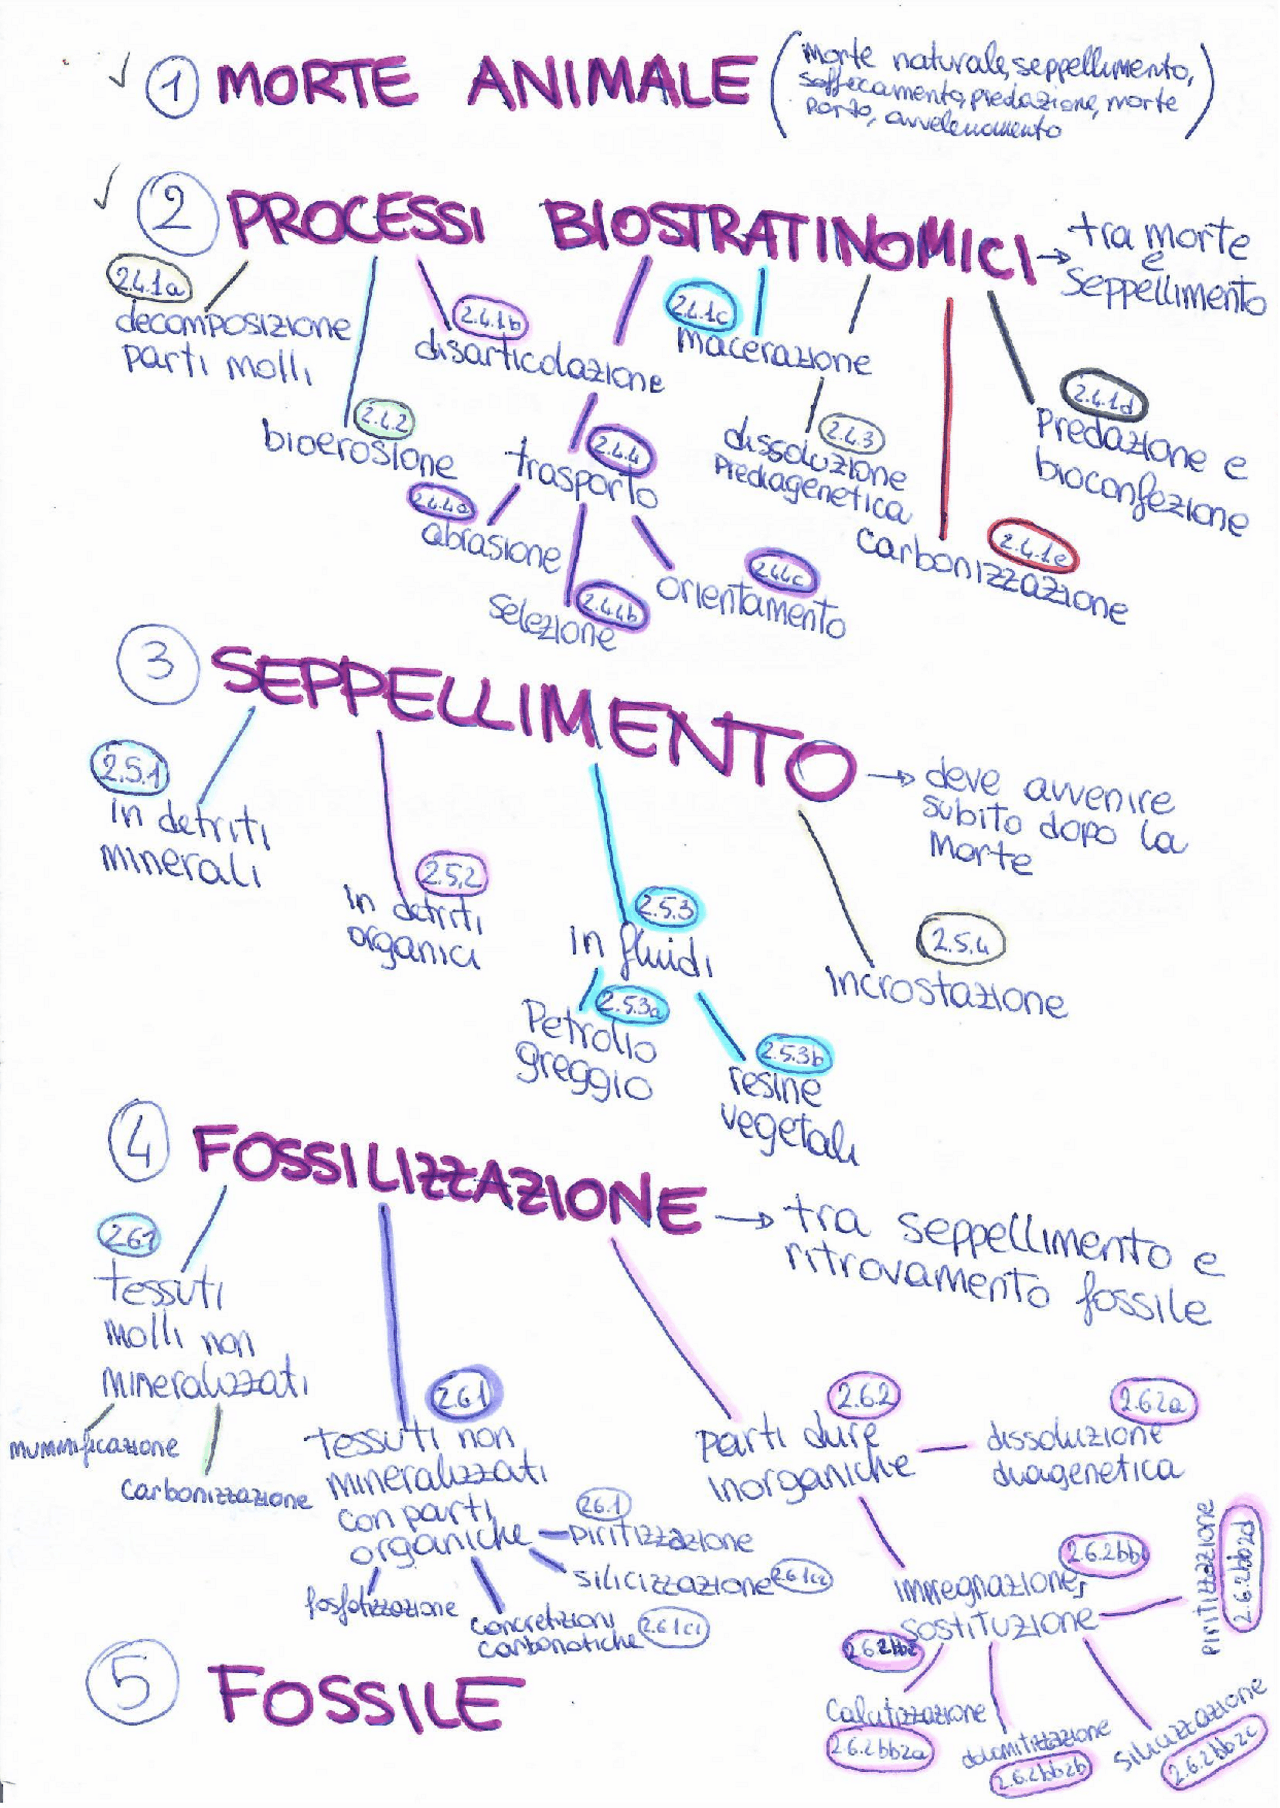 ① MORTE ANIMALE (morte naturale, seppellimento,
soffocamento, predazione, morte
parto, avvelenamento)
② PROCESSI BIOSTRATINOMICI → tra morte
e
seppellimento
2.4.1a
decomposizione
parti molli
2.4.2
bioerosione
2.4.1b
disarticolazione
2.4.4
trasporto
2.4.4a
abrasione
2.4.4b
selezione
2.4.4c
orientamento
2.4.1c
macerazione
2.4.3
dissoluzione
Prediagenetica
2.4.1e
carbonizzazione
2.4.1d
Predazione e
bioconfezione
③ SEPPELLIMENTO → deve avvenire
subito dopo la
morte
2.5.1
in detriti
minerali
2.5.2
in detriti
organici
2.5.3
in fluidi
2.5.3a
Petrolio
greggio
2.5.3b
resine
vegetali
2.5.4
incrostazione
④ FOSSILIZZAZIONE → tra seppellimento e
ritrovamento fossile
2.6.1
tessuti
molli non
mineralizzati
mummificazione
carbonizzazione
2.6.1
tessuti non
mineralizzati
con parti
organiche
2.6.1
piritizzazione
silicizzazione
fosfatizzazione
concrezioni
carbonatiche 2.6.1ci
2.6.2
parti dure
inorganiche
2.6.2a
dissoluzione
diagenetica
2.6.2bb
impregnazione,
sostituzione
piritizzazione
2.6.2bb2d
calcitizzazione
2.6.2bb2a
dolomitizzazione
2.6.2bb2b
silicizzazione
2.6.2bb2c
⑤ FOSSILE